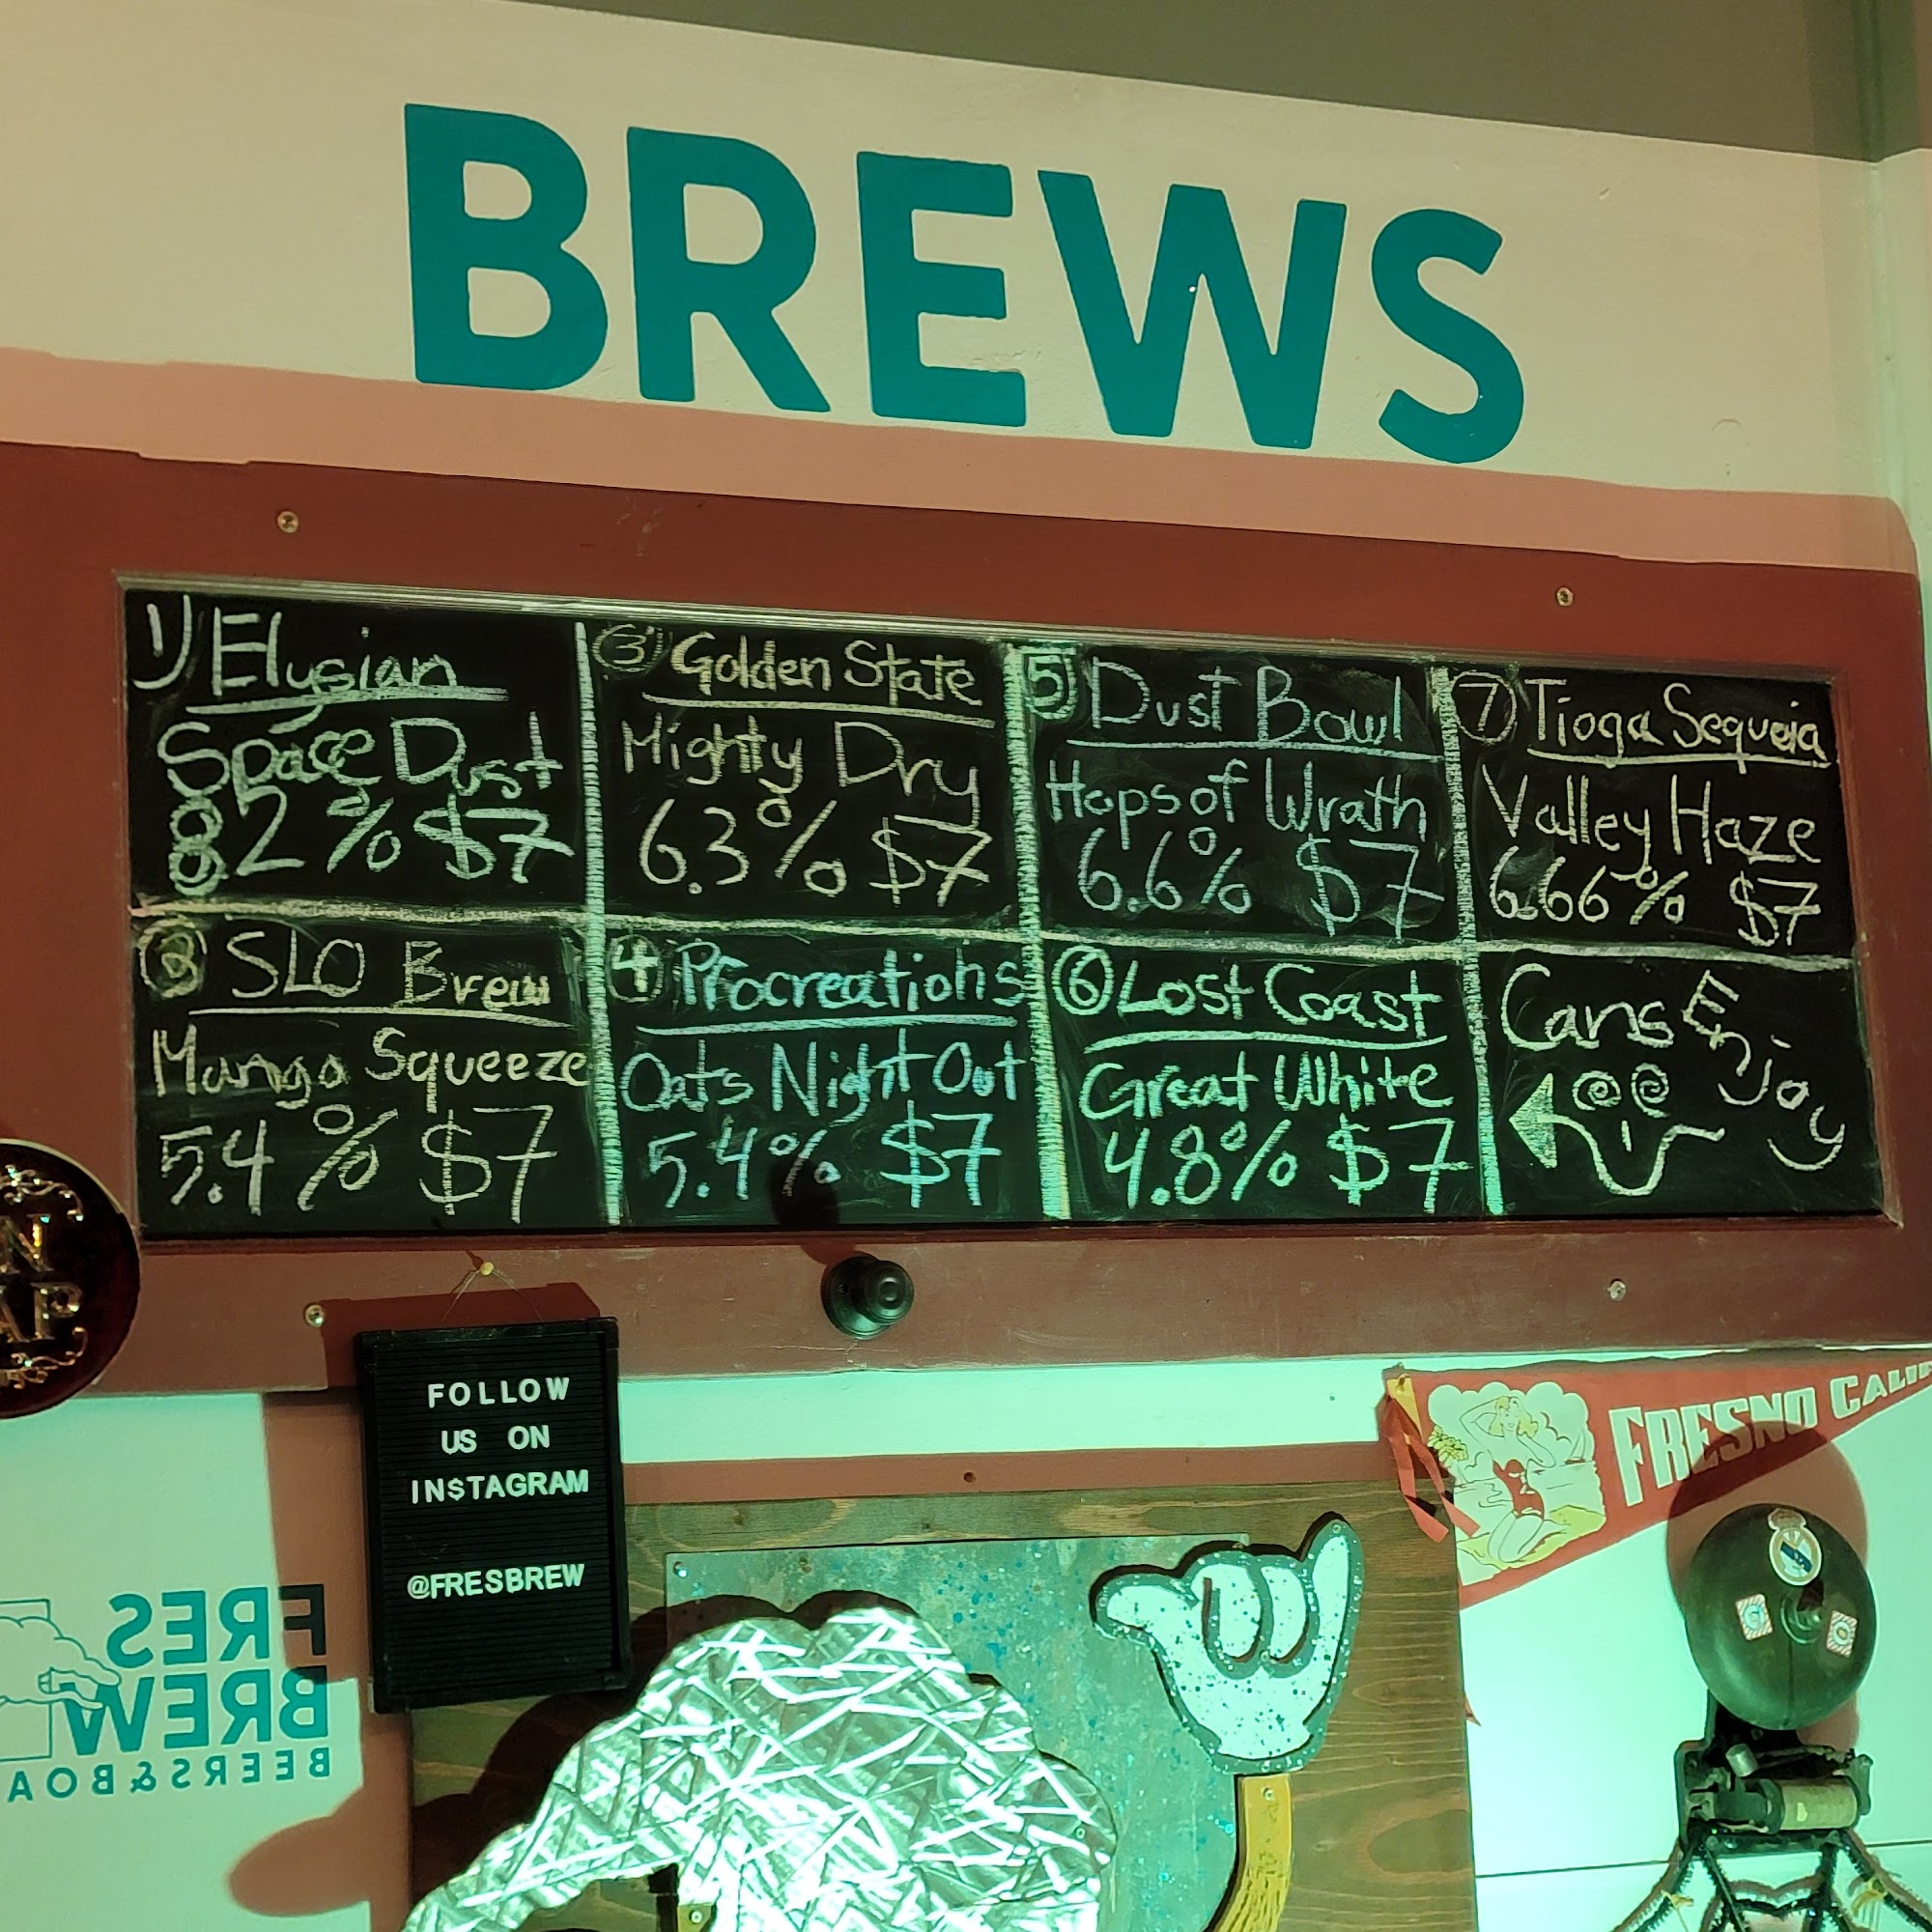 BREWS
1) Elysian
Space Dust
8.2% $7
③ Golden State
Mighty Dry
6.3% $7
5 Dust Bowl
Hops of Wrath
6.6% $7
⑦ Tioga Sequoia
Valley Haze
6.66% $7
SLO Brew
Mango Squeeze
5.4% $7
④ Procreations
Oats Night Out
5.4% $7
⑥ Lost Coast
Great White
4.8% $7
Cans Enjoy
FOLLOW
US ON
IN$TAGRAM
@FRESBREW
FRESNO CALIF
FRES
BREW
BEERS & BOA
N
AP